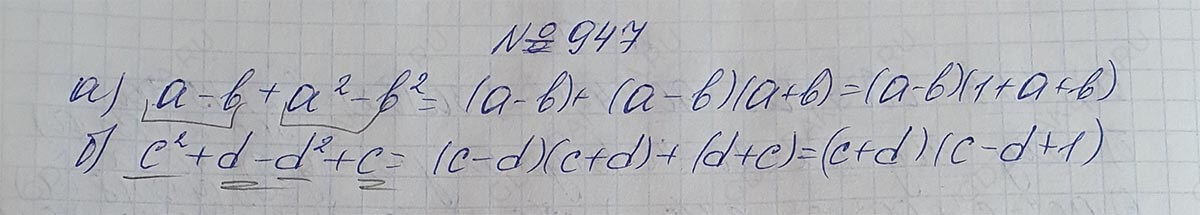 № 947
а) a - b + a² - b² = (a - b) + (a - b)(a + b) = (a - b)(1 + a + b)
б) c² + d - d² + c = (c - d)(c + d) + (d + c) = (c + d)(c - d + 1)